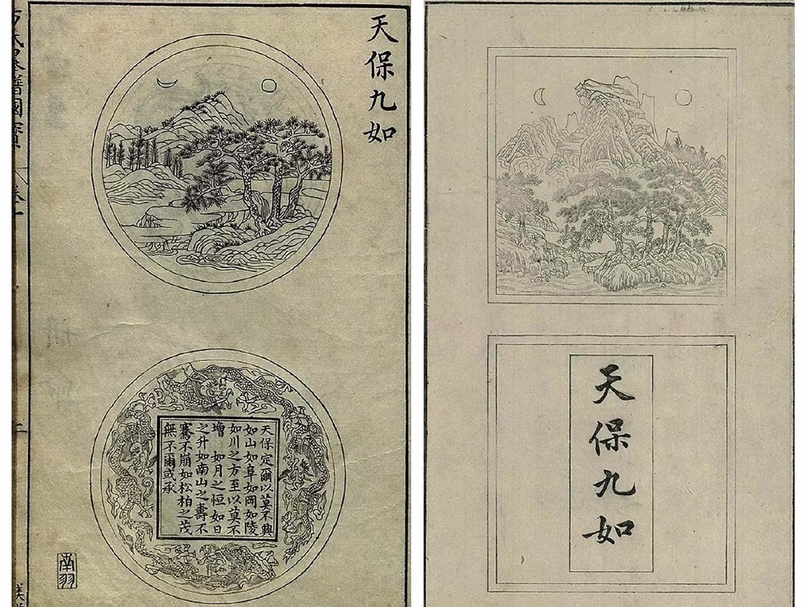 天保九如
天保定爾以莫不興
如山如阜如岡如陵
如川之方至以莫不
增 如月之恒如日
之升如南山之壽不
騫不崩如松柏之茂
無不爾或承
南羽
方氏墨譜國寶
卷一
二
天保九如